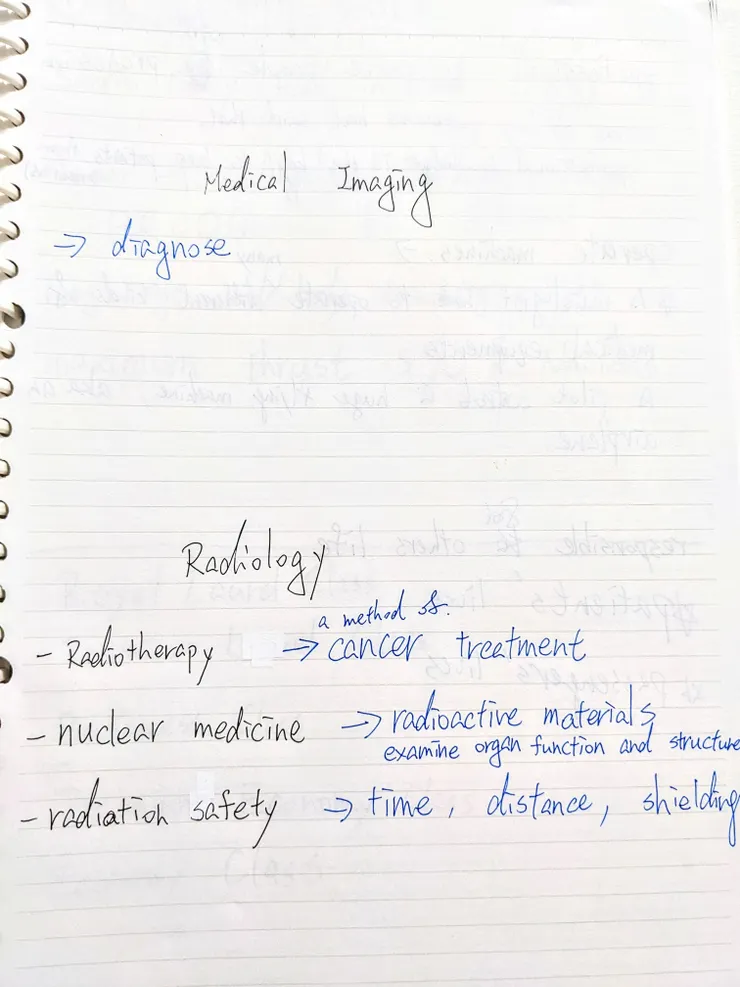 Medical Imaging
→ diagnose
Radiology
a method of.
- Radiotherapy → cancer treatment
- nuclear medicine → radioactive materials
examine organ function and structure
- radiation safety → time, distance, shielding